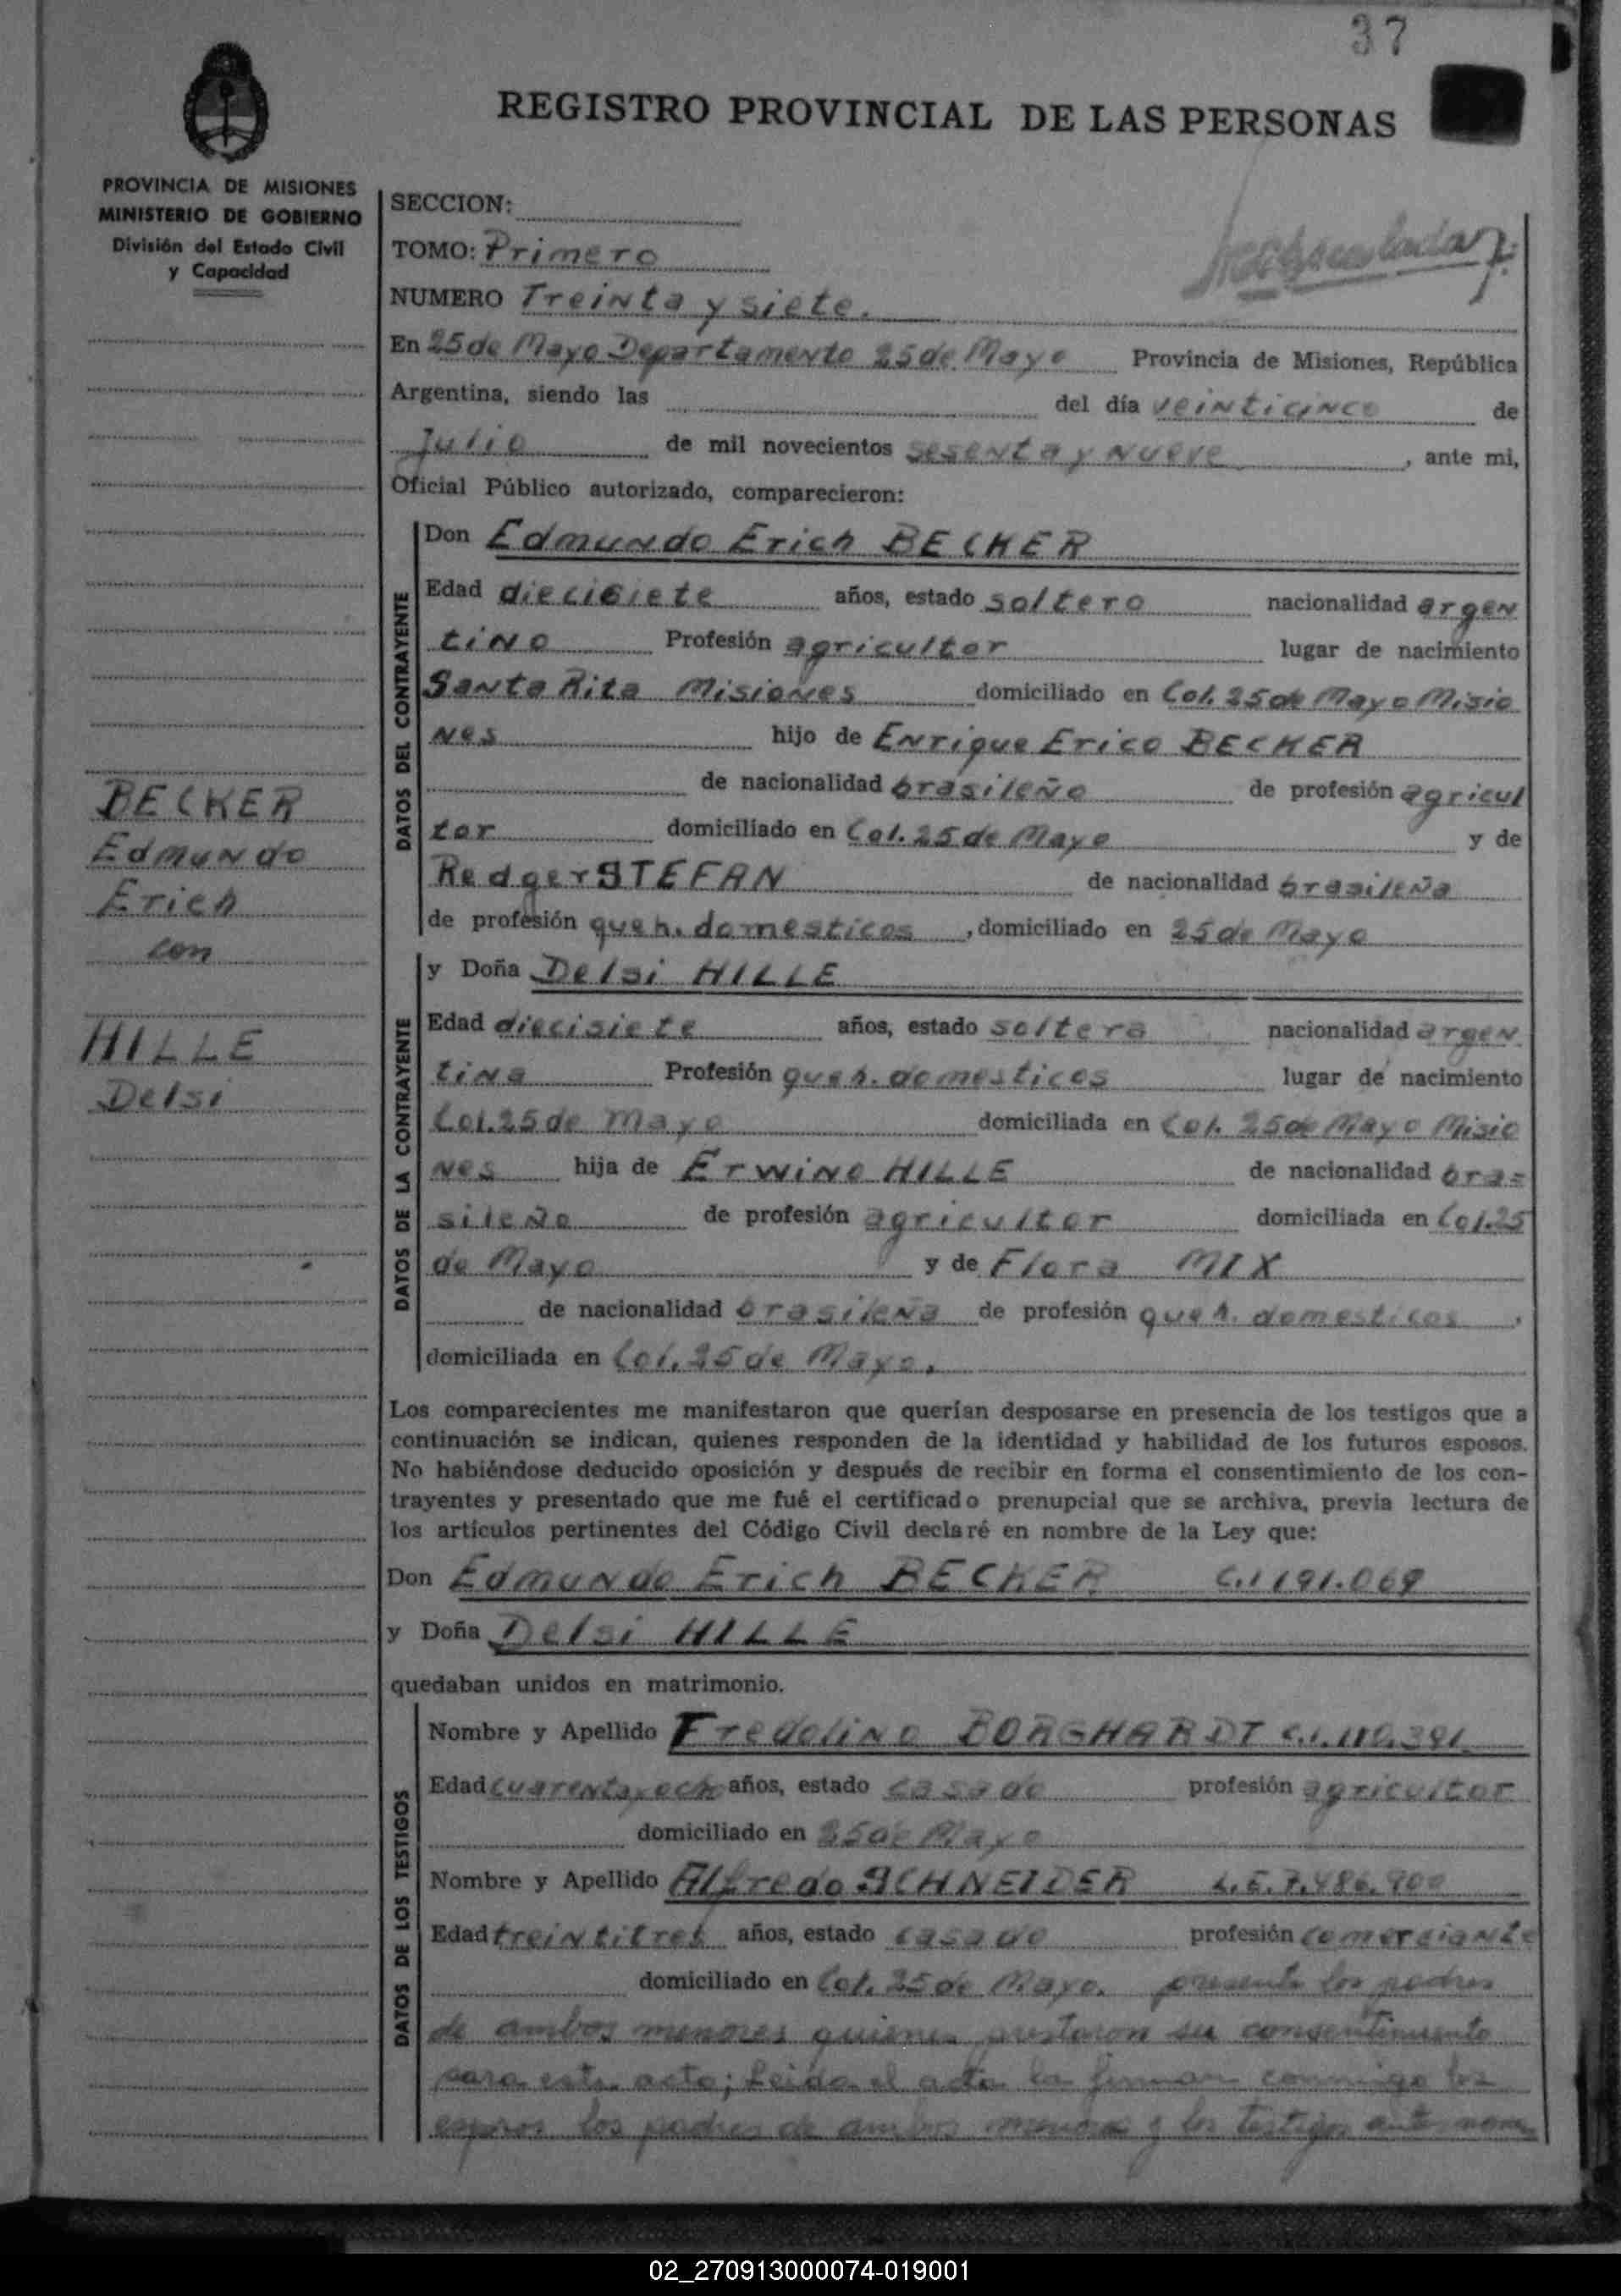 37
REGISTRO PROVINCIAL DE LAS PERSONAS
PROVINCIA DE MISIONES
MINISTERIO DE GOBIERNO
División del Estado Civil
y Capacidad
BECKER
Edmundo
Erich
con
HILLE
Delsi
SECCION:
TOMO: Primero
NUMERO Treinta y siete.
En 25 de Mayo Departamento 25 de Mayo Provincia de Misiones, República
Argentina, siendo las del día veinticinco de
Julio de mil novecientos sesenta y nueve, ante mi,
Oficial Público autorizado, comparecieron:
DATOS DEL CONTRAYENTE
Don Edmundo Erich BECKER
Edad diecisiete años, estado soltero nacionalidad argen
tino Profesión agricultor lugar de nacimiento
Santa Rita Misiones domiciliado en Col. 25 de Mayo Misio
nes hijo de Enrique Erico BECKER
de nacionalidad brasileño de profesión agricul
tor domiciliado en Col. 25 de Mayo y de
Redger STEFAN de nacionalidad brasileña
de profesión queh. domesticos, domiciliado en 25 de Mayo
DATOS DE LA CONTRAYENTE
y Doña Delsi HILLE
Edad diecisiete años, estado soltera nacionalidad argen
tina Profesión queh. domesticos lugar de nacimiento
Col. 25 de Mayo domiciliada en Col. 25 de Mayo Misio
nes hija de Erwino HILLE de nacionalidad bras=
sileño de profesión agricultor domiciliada en Col. 25
de Mayo y de Flora MIX
de nacionalidad brasileña de profesión queh. domesticos,
domiciliada en Col. 25 de Mayo.
Los comparecientes me manifestaron que querían desposarse en presencia de los testigos que a
continuación se indican, quienes responden de la identidad y habilidad de los futuros esposos.
No habiéndose deducido oposición y después de recibir en forma el consentimiento de los con-
trayentes y presentado que me fué el certificado prenupcial que se archiva, previa lectura de
los artículos pertinentes del Código Civil declaré en nombre de la Ley que:
Don Edmundo Erich BECKER C.I 191.069
y Doña Delsi HILLE
quedaban unidos en matrimonio.
DATOS DE LOS TESTIGOS
Nombre y Apellido Fredolino BORGHARDT C.I. 110.391
Edad cuarenta y och años, estado casado profesión agricultor
domiciliado en 25 de Mayo
Nombre y Apellido Alfredo SCHNEIDER L.E. 7.486.900
Edad treintitres años, estado casado profesión comerciante
domiciliado en Col. 25 de Mayo. presente los padres
de ambos menores quienes prestaron su consentimiento
para este acto; Leida el acta la firman conmigo los
esposos los padres de ambos menores y los testigos ante nom
02_270913000074-019001